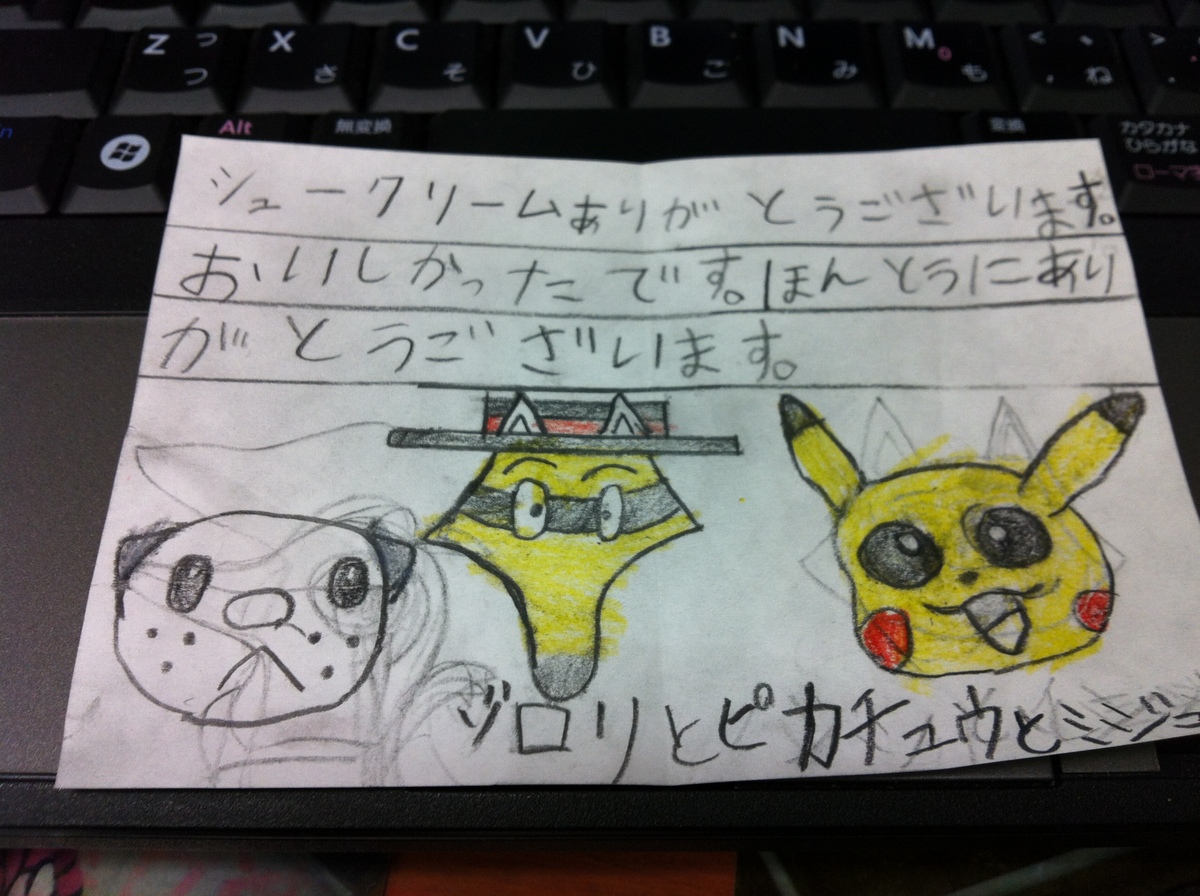 Z っ つ
X さ
C そ
V ひ
B こ
N み
M 。 も
< 、 , ね
> 。 .
Alt
無変換
変換
カタカナ
ひらがな
シュークリームありがとうございます。
おいしかったです。ほんとうにあり
がとうございます。
ゾロリとピカチュウとミジュ